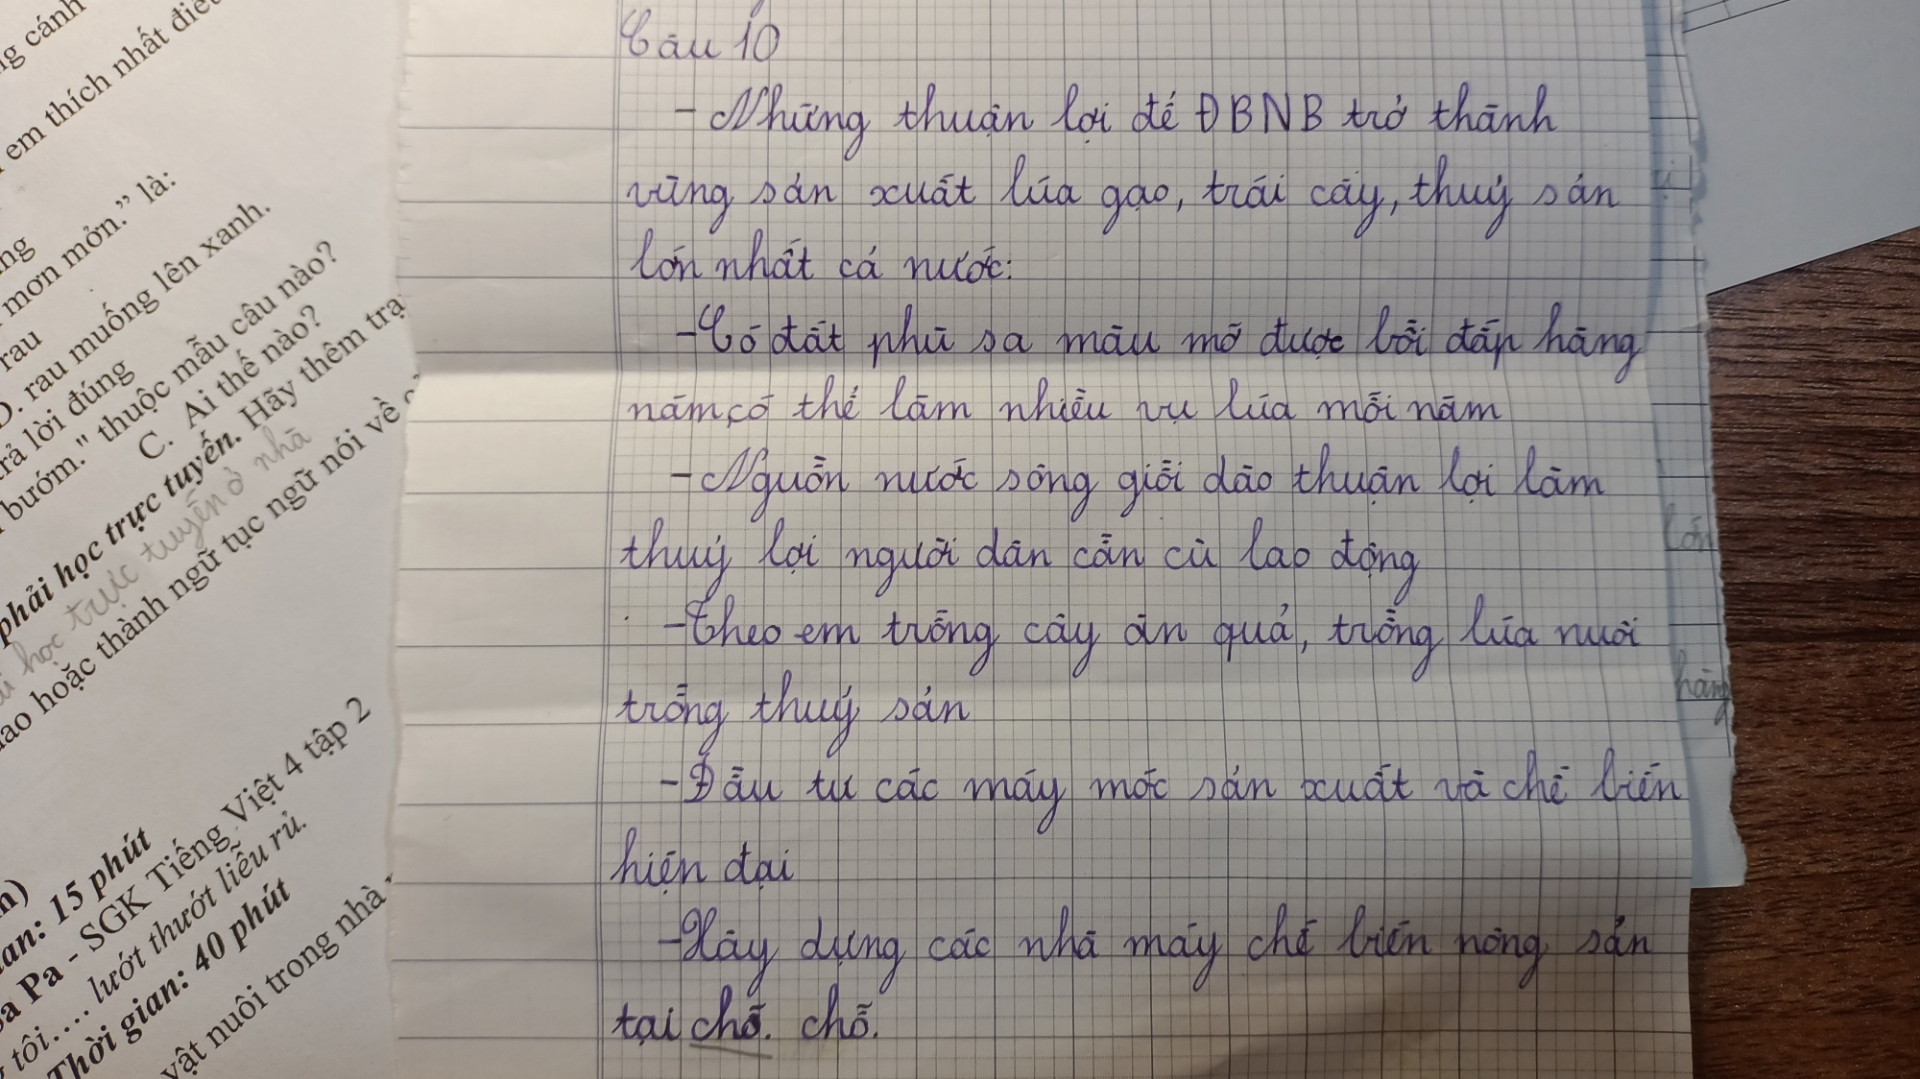 g cánh
em thích nhất điề
ng
mơn mởn.” là:
rau
D. rau muống lên xanh.
rả lời đúng
bướm." thuộc mẫu câu nào?
C. Ai thế nào?
phải học trực tuyến. Hãy thêm trạ
học trực tuyến ở nhà
ao hoặc thành ngữ tục ngữ nói về
ian: 15 phút
a Pa - SGK Tiếng Việt 4 tập 2
tôi.... lướt thướt liễu rủ.
Thời gian: 40 phút
vật nuôi trong nhà
Câu 10
- Những thuận lợi để ĐBNB trở thành
vùng sản xuất lúa gạo, trái cây, thuỷ sản
lớn nhất cả nước:
- Có đất phù sa màu mỡ được bồi đắp hàng
năm,có thể làm nhiều vụ lúa mỗi năm
- Nguồn nước sông giồi dào thuận lợi làm
thuỷ lợi người dân cần cù lao động
- Theo em trồng cây ăn quả, trồng lúa nuôi
trồng thuỷ sản
- Đầu tư các máy móc sản xuất và chế biến
hiện đại
- Xây dựng các nhà máy chế biến nông sản
tại chỗ. chỗ.
lớn
hàng